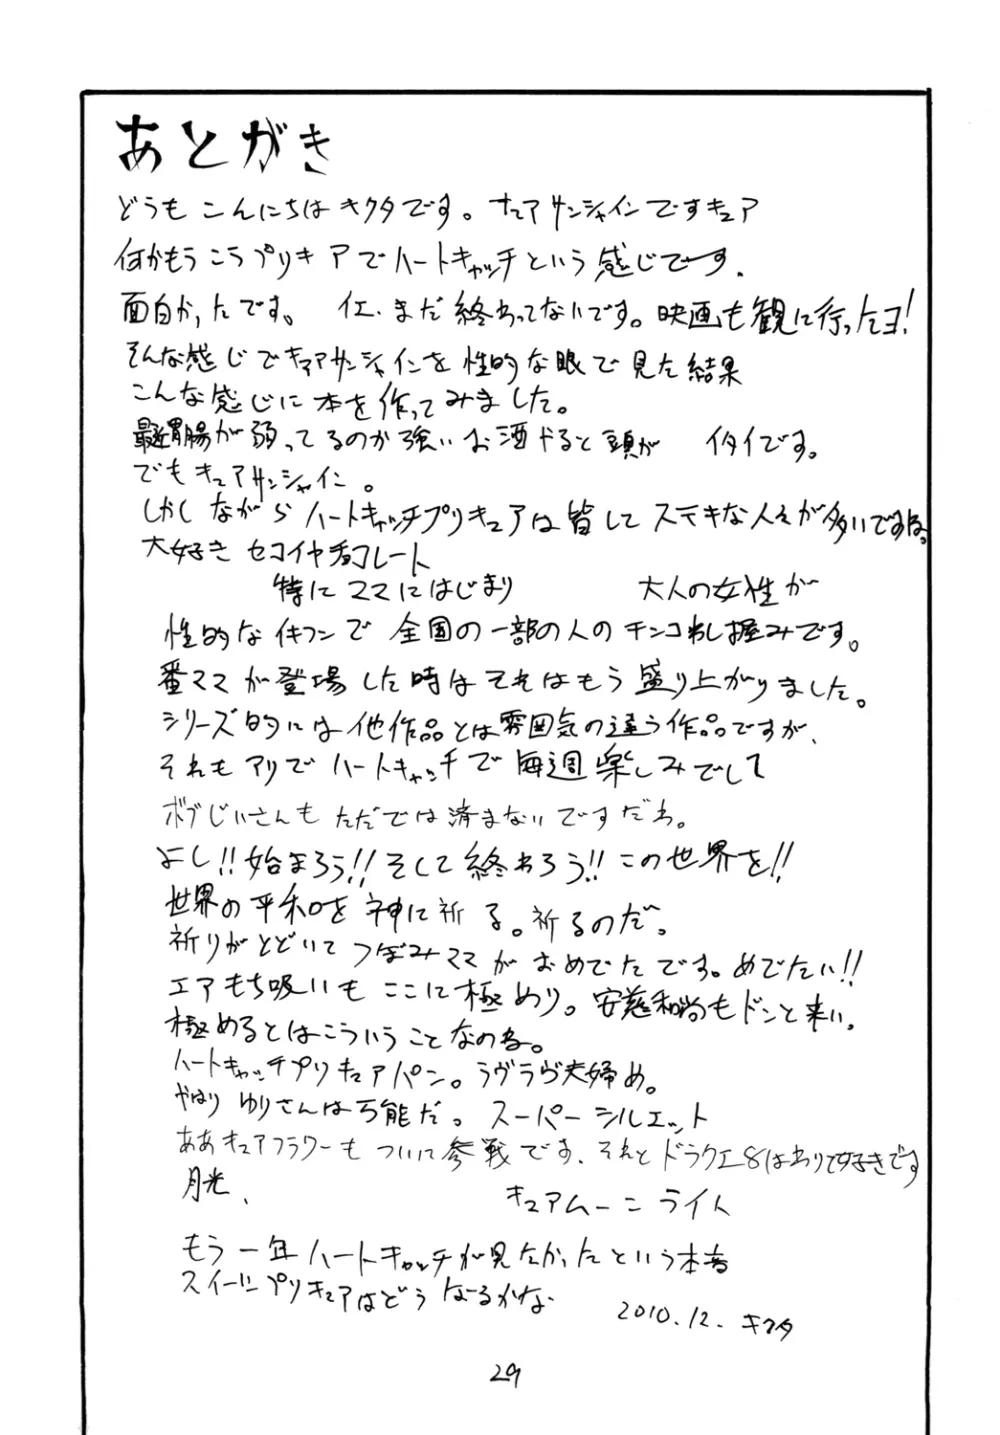 あとがき
どうも こんにちは キクタです。 キュアサンシャインですキュア
何かもうこうプリキュアでハートキャッチという感じです.
面白かったです。 イエ. まだ終わってないです。映画も観に行ったヨ!
そんな感じでキュアサンシャインを性的な眼で見た結果
こんな感じに本を作ってみました。
最近胃腸が弱ってるのか強いお酒やると頭が イタイです。
でもキュアサンシャイン。
しかしながらハートキャッチプリキュアは皆してステキな人々が多いですね。
大好きセコイヤチョコレート
特にママにはじまり 大人の女性が
性的なイキフンで全国の一部の人のチンコわし掴みです。
番ママが登場した時はそれはもう盛り上がりました。
シリーズ的には他作品とは雰囲気の違う作品ですが、
それもアリでハートキャッチで毎週楽しみでして
ボブじいさんもただでは済まないですだわ。
よし!!始まろう!!そして終わろう!!この世界を!!
世界の平和を神に祈る。祈るのだ。
祈りがとどいてつぼみママがおめでたです。めでたい!!
エアもち吸いもここに極めり。安慈和尚もドンと来い.
極めるとはこういうことなのね。
ハートキャッチプリキュアパン。ラヴラヴ夫婦め。
やはりゆりさんは万能だ。スーパーシルエット
ああキュアフラワーもついに参戦です. それとドラクエ8はわりと好きです
月光. キュアムーンライト
もう一年ハートキャッチが見たかったという本音
スイートプリキュアはどうなるかな
2010.12. キクタ
29